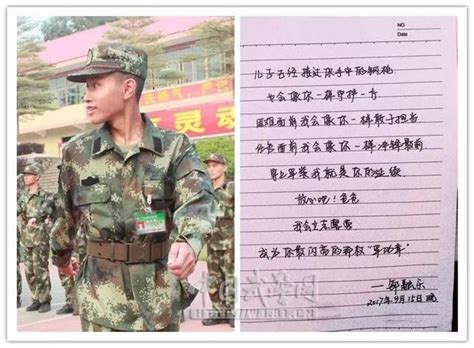 灵动
中国武警网
NO
Date
儿子已经接过你手中的钢枪
也会像你一样守护一方
困难面前我会像你一样敢于担当
任务面前我会像你一样冲锋最前
穿上军装我就是你的延续
放心吧!爸爸
我会立志
成为你最闪亮的那枚“军功章”
2017年9月15日晚